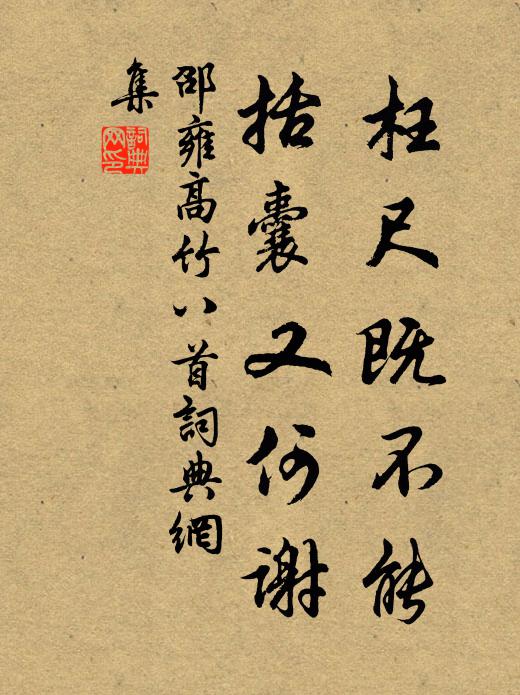 枉尺既不能
括囊又何谢
邵雍高竹八首詞典網
集
詞典
网印